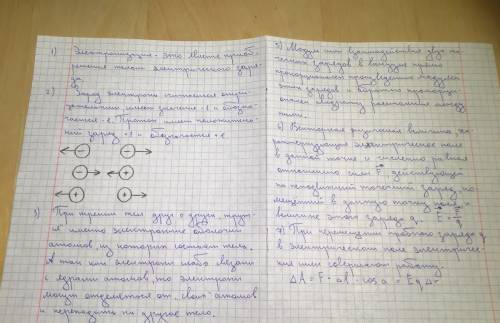 1) Электризация - это явление приоб-
ретения телом электрического заря-
да
2) Заряд электрона считается отри-
цательным имеет значение -е и обозна-
чается -е. Протон имеет положитель-
ный заряд +е и обозначается +е
- -
- +
+ +
3) При трении тел друг о друга, трут-
ся именно электронные оболочки
атомов, из которых состоят тела.
А так как электроны слабо связаны
с ядрами атомов, то электроны
могут отделяться от своих атомов
и переходить на другое тело.
5) Модуль сил взаимодействия двух то-
чечных зарядов в вакууме прямо
пропорционален произведению модулей
этих зарядов и обратно пропорцио-
нален квадрату расстояния между
ними.
6) Векторная физическая величина, ха-
рактеризующая электрическое поле
в данной точке и численно равная
отношению силы F, действующей
на неподвижный точечный заряд, по-
мещенный в данную точку поля, к
величине этого заряда q. E = F/q
7) При перемещении пробного заряда q
в электрическом поле электричес-
кие силы совершают работу.
ΔA = F · Δl · cos α = Eq Δl